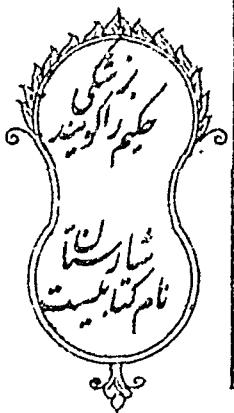 بزشکی
حکیم را کویند
شارستان
نام کتابیست